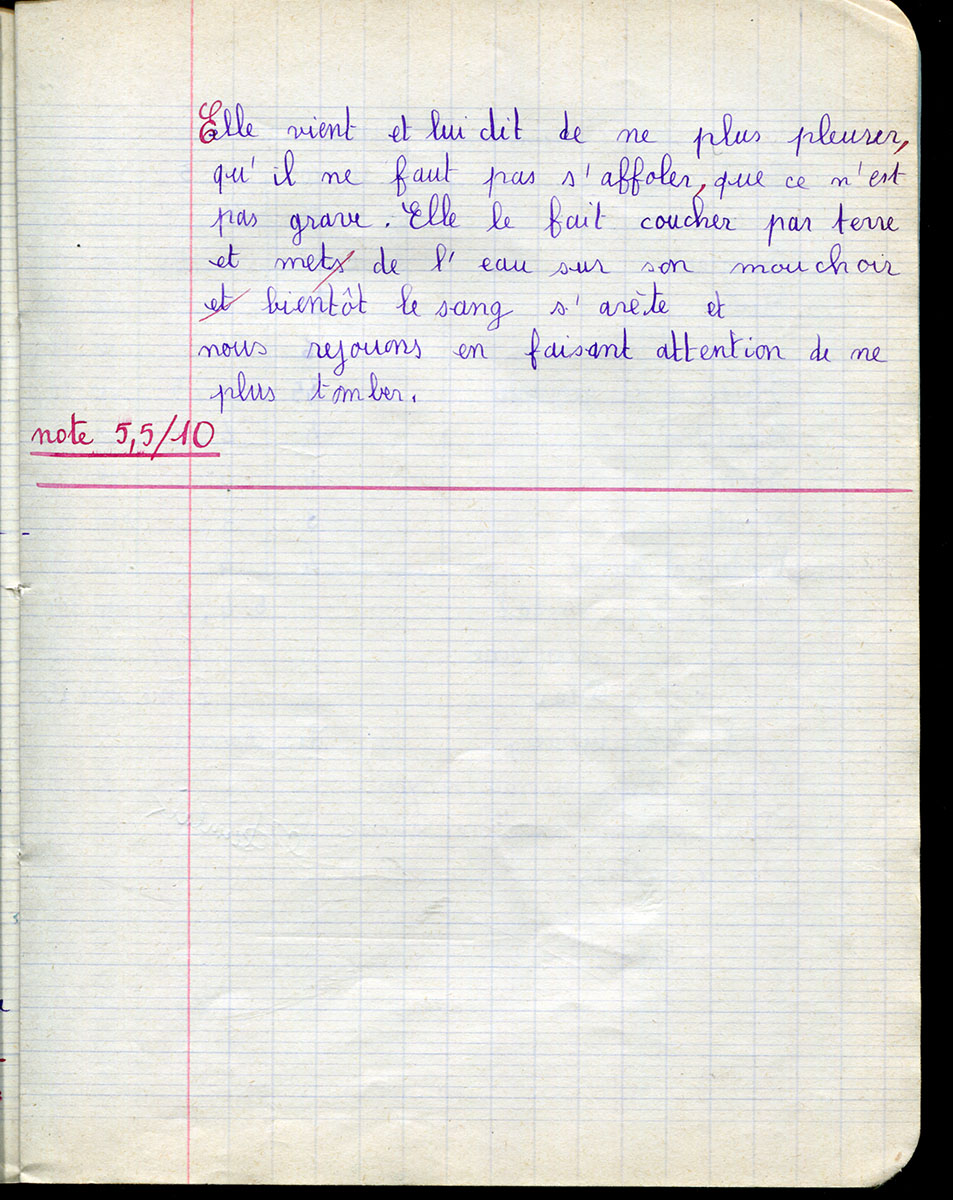 Elle vient et lui dit de ne plus pleurer,
qu'il ne faut pas s'affoler, que ce n'est
pas grave. Elle le fait coucher par terre
et mets de l'eau sur son mouchoir
et bientôt le sang s'arète et
nous rejouons en faisant attention de ne
plus tomber.
note 5,5/10